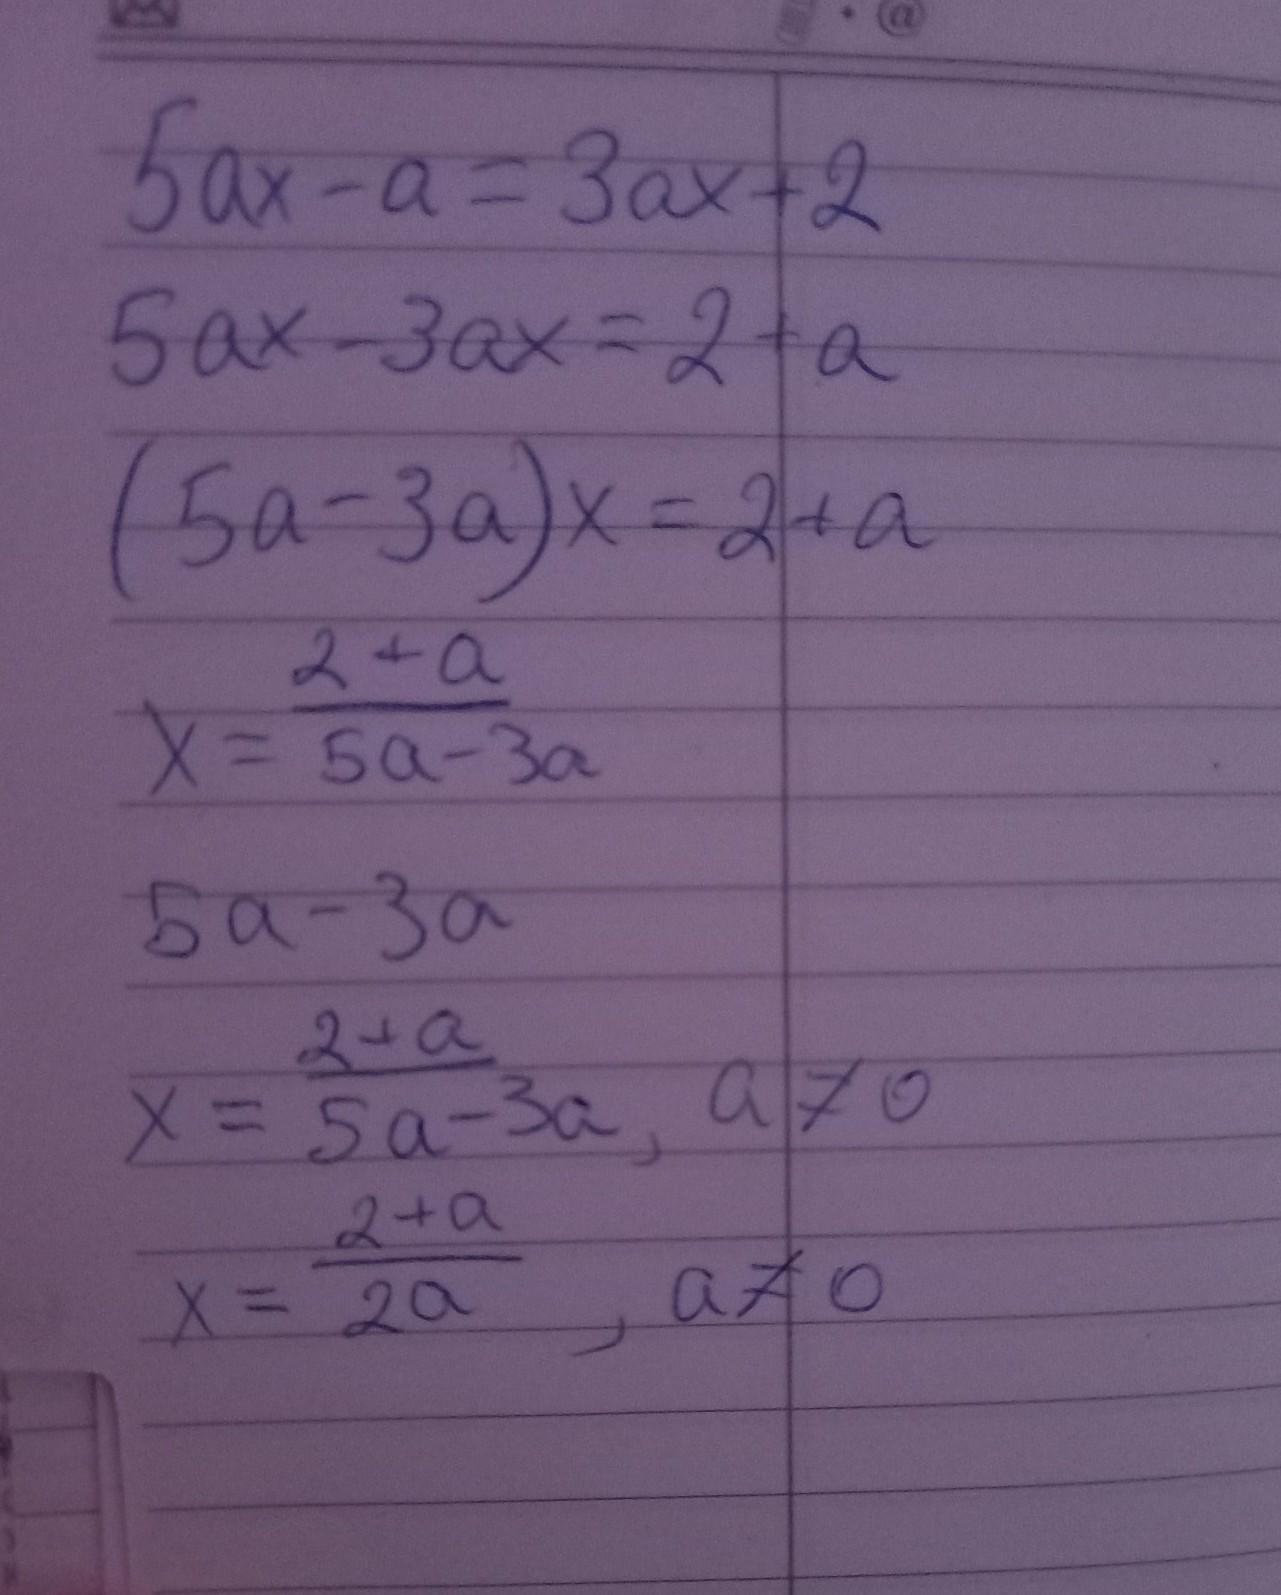 @
5ax - a = 3ax + 2
5ax - 3ax = 2 + a
(5a - 3a)x = 2 + a
x = \frac{2 + a}{5a - 3a}
5a - 3a
x = \frac{2 + a}{5a - 3a}, a ≠ 0
x = \frac{2 + a}{2a}, a ≠ 0